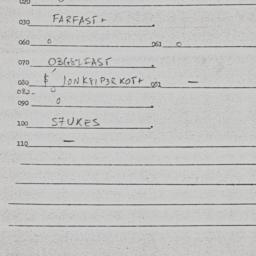 020
030 FARFAST+
060 0 061 0
070
080 $ 081 —
082
090 0
100 S7UKES
110 —